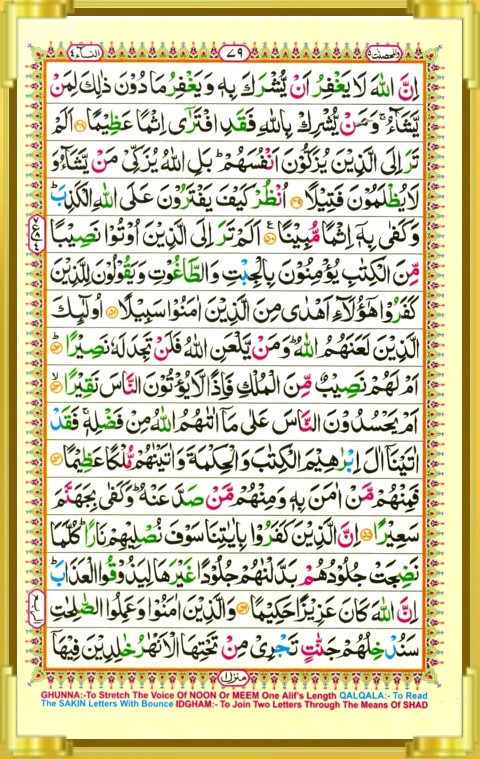 النسآء ٤
٧٩
والمحصنت ٥
اِنَّ اللّٰهَ لَا يَغْفِرُ اَنْ يُّشْرَكَ بِهٖ وَيَغْفِرُ مَا دُوْنَ ذٰلِكَ لِمَنْ
يَّشَآءُ ۚ وَمَنْ يُّشْرِكْ بِاللّٰهِ فَقَدِ افْتَرٰٓى اِثْمًا عَظِيْمًا ﴿۴۸﴾ اَلَمْ
تَرَ اِلَى الَّذِيْنَ يُزَكُّوْنَ اَنْفُسَهُمْ ؕ بَلِ اللّٰهُ يُزَكِّيْ مَنْ يَّشَآءُ وَ
لَا يُظْلَمُوْنَ فَتِيْلًا ﴿۴۹﴾ اُنْظُرْ كَيْفَ يَفْتَرُوْنَ عَلَى اللّٰهِ الْكَذِبَ ؕ
وَكَفٰى بِهٖۤ اِثْمًا مُّبِيْنًا ﴿۵۰﴾ اَلَمْ تَرَ اِلَى الَّذِيْنَ اُوْتُوْا نَصِيْبًا
مِّنَ الْكِتٰبِ يُؤْمِنُوْنَ بِالْجِبْتِ وَالطَّاغُوْتِ وَيَقُوْلُوْنَ لِلَّذِيْنَ
كَفَرُوْا هٰٓؤُلَآءِ اَهْدٰى مِنَ الَّذِيْنَ اٰمَنُوْا سَبِيْلًا ﴿۵۱﴾ اُولٰٓئِكَ
الَّذِيْنَ لَعَنَهُمُ اللّٰهُ ؕ وَمَنْ يَّلْعَنِ اللّٰهُ فَلَنْ تَجِدَ لَهٗ نَصِيْرًا ﴿۵۲﴾
اَمْ لَهُمْ نَصِيْبٌ مِّنَ الْمُلْكِ فَاِذًا لَّا يُؤْتُوْنَ النَّاسَ نَقِيْرًا ﴿۵۳﴾
اَمْ يَحْسُدُوْنَ النَّاسَ عَلٰى مَاۤ اٰتٰىهُمُ اللّٰهُ مِنْ فَضْلِهٖ ۚ فَقَدْ
اٰتَيْنَاۤ اٰلَ اِبْرٰهِيْمَ الْكِتٰبَ وَالْحِكْمَةَ وَاٰتَيْنٰهُمْ مُّلْكًا عَظِيْمًا ﴿۵۴﴾
فَمِنْهُمْ مَّنْ اٰمَنَ بِهٖ وَمِنْهُمْ مَّنْ صَدَّ عَنْهُ ؕ وَكَفٰى بِجَهَنَّمَ
سَعِيْرًا ﴿۵۵﴾ اِنَّ الَّذِيْنَ كَفَرُوْا بِاٰيٰتِنَا سَوْفَ نُصْلِيْهِمْ نَارًا ؕ كُلَّمَا
نَضِجَتْ جُلُوْدُهُمْ بَدَّلْنٰهُمْ جُلُوْدًا غَيْرَهَا لِيَذُوْقُوا الْعَذَابَ ؕ
اِنَّ اللّٰهَ كَانَ عَزِيْزًا حَكِيْمًا ﴿۵۶﴾ وَالَّذِيْنَ اٰمَنُوْا وَعَمِلُوا الصّٰلِحٰتِ
سَنُدْخِلُهُمْ جَنّٰتٍ تَجْرِيْ مِنْ تَحْتِهَا الْاَنْهٰرُ خٰلِدِيْنَ فِيْهَاۤ
منزل ١
GHUNNA:-To Stretch The Voice Of NOON Or MEEM One Alif's Length QALQALA:- To Read
The SAKIN Letters With Bounce IDGHAM:- To Join Two Letters Through The Means Of SHAD